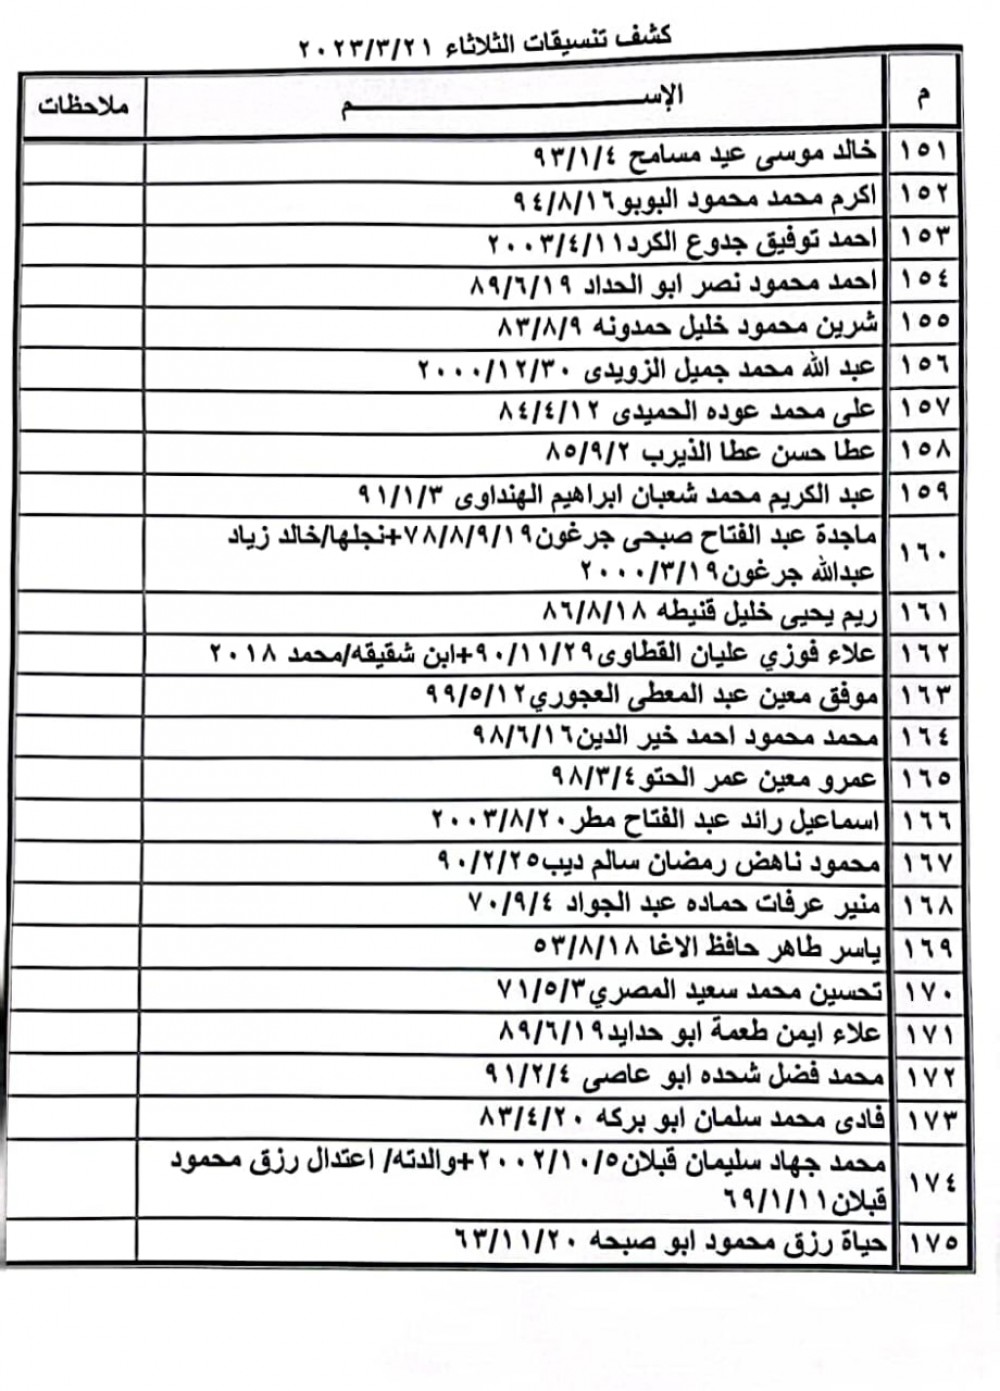 كشف تنسيقات الثلاثاء ٢٠٢٣/٣/٢١
م الإســـــــــــم ملاحظات
١٥١ خالد موسى عيد مسامح ٩٣/١/٤
١٥٢ اكرم محمد محمود البوبو٩٤/٨/١٦
١٥٣ احمد توفيق جدوع الكرد٢٠٠٣/٤/١١
١٥٤ احمد محمود نصر ابو الحداد ٨٩/٦/١٩
١٥٥ شرين محمود خليل حمدونه ٨٣/٨/٩
١٥٦ عبد الله محمد جميل الزويدى ٢٠٠٠/١٢/٣٠
١٥٧ على محمد عوده الحميدى ٨٤/٤/١٢
١٥٨ عطا حسن عطا الذيرب ٨٥/٩/٢
١٥٩ عبد الكريم محمد شعبان ابراهيم الهنداوى ٩١/١/٣
١٦٠ ماجدة عبد الفتاح صبحى جرغون٧٨/٨/٩/١٩+نجلها/خالد زياد
عبدالله جرغون٢٠٠٠/٣/١٩
١٦١ ريم يحيى خليل قنيطه ٨٦/٨/١٨
١٦٢ علاء فوزي عليان القطاوى٩٠/١١/٢٩+ابن شقيقه/محمد ٢٠١٨
١٦٣ موفق معين عبد المعطى العجوري٩٩/٥/١٢
١٦٤ محمد محمود احمد خير الدين٩٨/٦/١٦
١٦٥ عمرو معين عمر الحتو٩٨/٣/٤
١٦٦ اسماعيل رائد عبد الفتاح مطر٢٠٠٣/٨/٢٠
١٦٧ محمود ناهض رمضان سالم ديب٩٠/٢/٢٥
١٦٨ منير عرفات حماده عبد الجواد ٧٠/٩/٤
١٦٩ ياسر طاهر حافظ الاغا ٥٣/٨/١٨
١٧٠ تحسين محمد سعيد المصري٧١/٥/٣
١٧١ علاء ايمن طعمة ابو حدايد٨٩/٦/١٩
١٧٢ محمد فضل شحده ابو عاصى ٩١/٢/٤
١٧٣ فادى محمد سلمان ابو بركه ٨٣/٤/٢٠
١٧٤ محمد جهاد سليمان قبلان٢٠٠٢/١٠/٥+والدته/ اعتدال رزق محمود
قبلان٦٩/١/١١
١٧٥ حياة رزق محمود ابو صبحه ٦٣/١١/٢٠